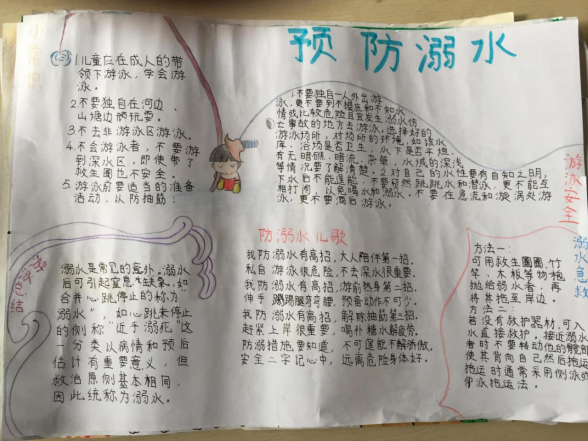 预防溺水
小常识
1儿童应在成人的带
领下游泳，学会游
泳。
2不要独自在河边、
山塘边玩耍。
3不去非游泳区游泳。
4不会游泳者，不要游
到深水区，即使带了
救生圈也不安全。
5游泳前要适当的准备
活动，以防抽筋：
1不要独自一人外出游
泳，更不要到不摸底和不知水
情或比较危险且宜发生溺水伤
亡事故的地方去游泳。选择好的
游泳场所，对场所的环境，如该水
库、浴场是否卫生，水下是否平坦，
有无暗礁、暗流、杂草，水域的深浅
等情况要了解清楚。2对自己的水性要有自知之明，
下水后不能逞能，不要贸然跳水和潜泳，更不能互
相打闹，以免喝水和溺水。不要在急流和漩涡处游
泳，更不要酒后游泳。
游泳安全
游泳总结
溺水是常见的意外，溺水
后可引起窒息缺氧，如
合并心跳停止的称为“
溺水”，如心跳未停止
的则称“近于溺死”这
一分类以病情和预后
估计有重要意义，但
救治原则基本相同，
因此统称为溺水。
防溺水儿歌
我防溺水有高招，大人陪伴第一招。
私自游泳很危险，不去深水很重要。
我防溺水有高招，游前热身第二招。
伸手踢腿弯弯腰，预备动作不可少。
我防溺水有高招，解除抽筋第三招。
赶紧上岸很重要，喝补糖水解疲劳。
防溺措施要知道，不可逞能不解骄傲，
安全二字记心中，远离危险身体好。
溺水急救
方法一：
可用救生圈圈，竹
竿、木板等物拖
抛给溺水者，再
将其拖至岸边。
方法二：
若没有救护器材，可入
水直接救护。接近溺水
者时不要转动他的髋部
使其背向自己然后拖运
拖运时通常采用侧泳或
仰泳拖运法。